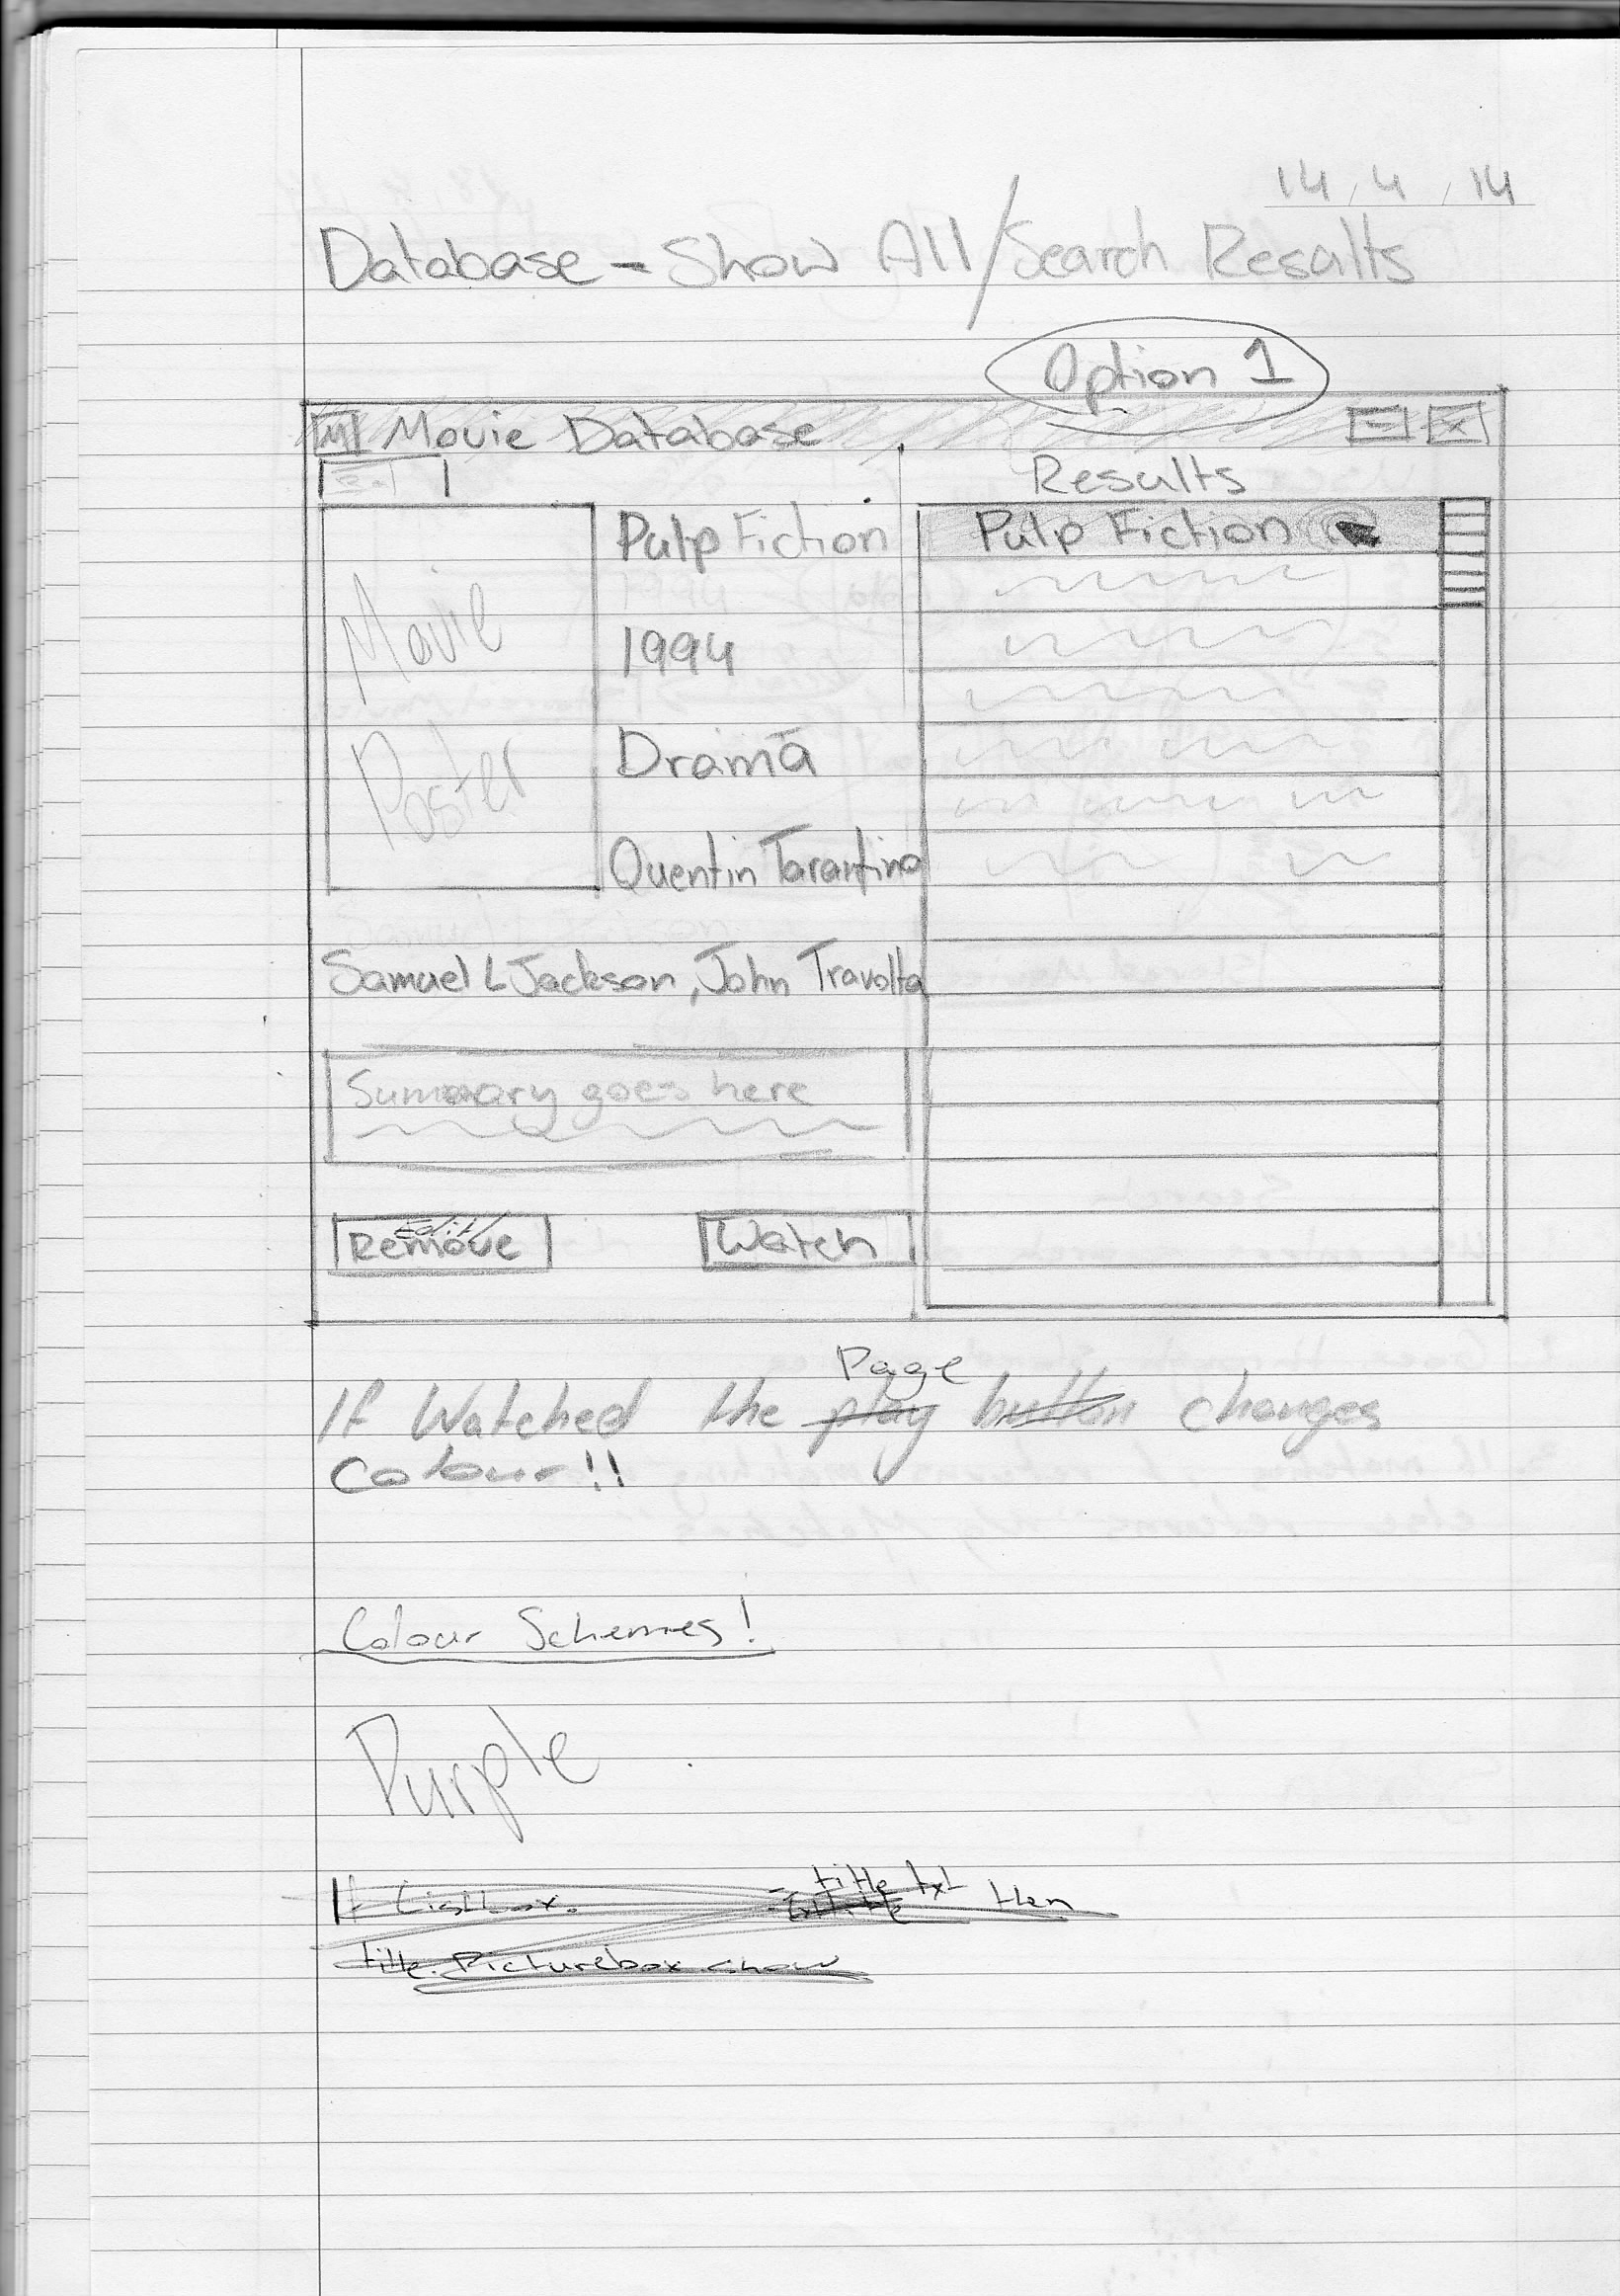 14.4.14
Database - Show All/Search Results
Option 1
M Movie Database - x
Results
Pulp Fiction
Pulp Fiction
Movie
1994
Poster
Drama
Quentin Tarantino
Samuel L Jackson, John Travolta
Summary goes here
Edit
Remove
Watch
Page
If Watched the play button changes
Colour!!
Colour Schemes!
Purple
title txt
If Listbox. = then
title. Picturebox show